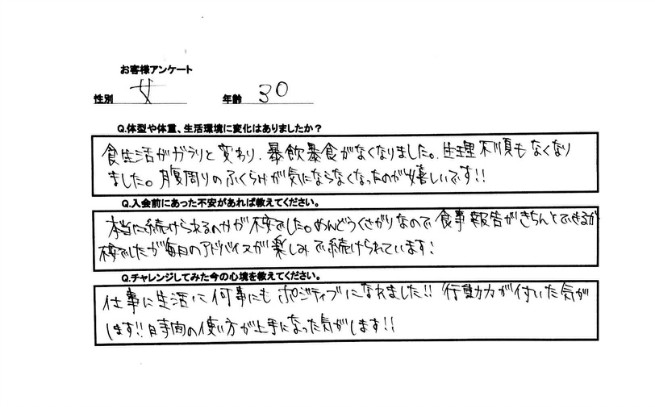 お客様アンケート
性別 女 年齢 30
Q.体型や体重、生活環境に変化はありましたか?
食生活がガラリと変わり、暴飲暴食がなくなりました。生理不順もなくなり
ました。腹周りのふくらみが気にならなくなったのが嬉しいです!!
Q.入会前にあった不安があれば教えてください。
本当に続けられるのかが不安でした。めんどうくさがりなので食事報告がきちんとできるか
不安でしたが毎日のアドバイスが楽しみで続けられています!
Q.チャレンジしてみた今の心境を教えてください。
仕事に生活に何事にもポジティブになれました!!行動力が付いた気が
します!!時間の使い方が上手になった気がします!!